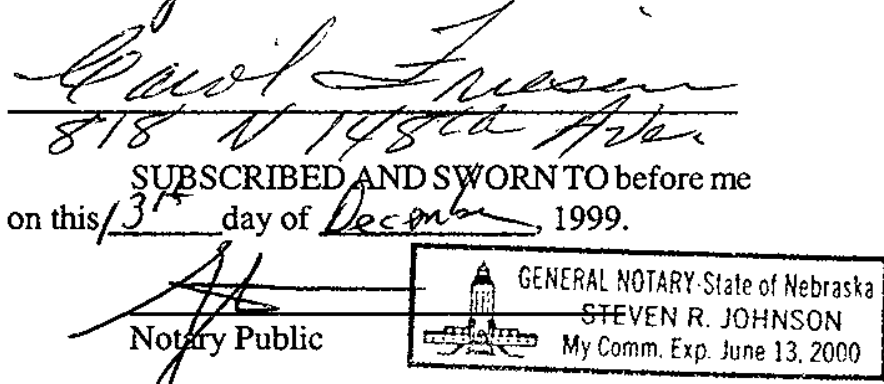 Carol Friesen
818 N 148th Ave.
SUBSCRIBED AND SWORN TO before me
on this 13th day of December, 1999.
Notary Public
GENERAL NOTARY-State of Nebraska
STEVEN R. JOHNSON
My Comm. Exp. June 13, 2000